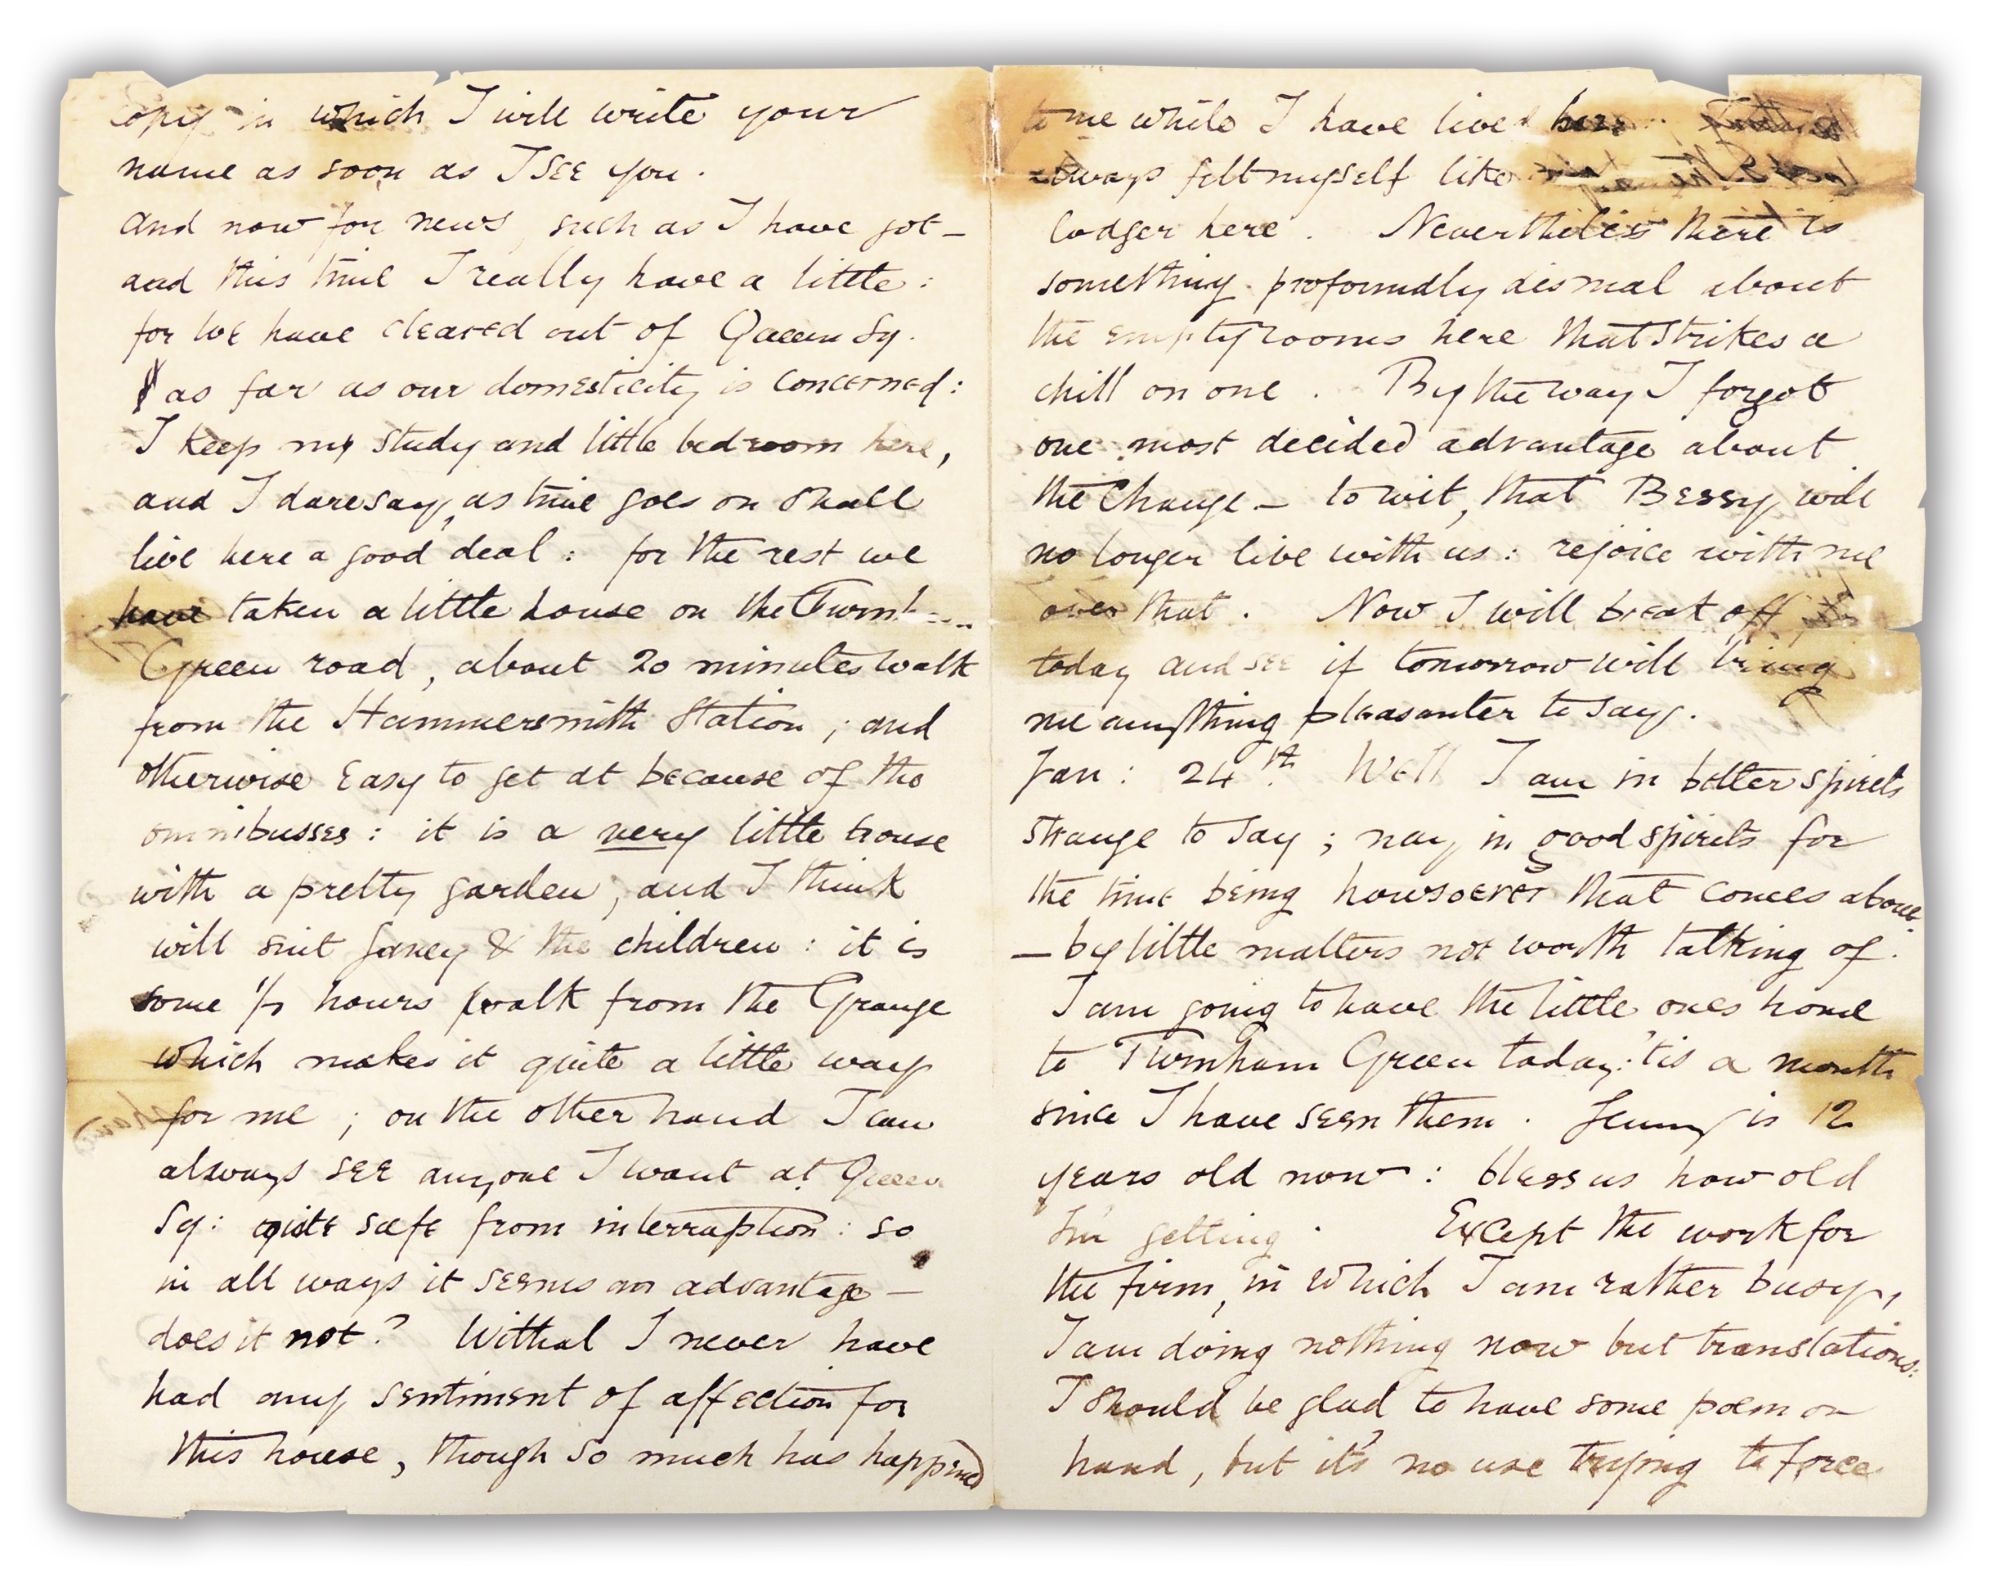 copy in which I will write your
name as soon as I see you.
and now for news, such as I have got —
and this time I really have a little:
for we have cleared out of Queen Sq.
as far as our domesticity is concerned:
I keep my study and little bedroom here,
and I daresay, as time goes on shall
live here a good deal: for the rest we
have taken a little house on the Turnh
Green road, about 20 minutes walk
from the Hammersmith Station; and
otherwise easy to get at because of the
omnibusses: it is a very little house
with a pretty garden, and I think
will suit Janey & the children: it is
some 1/2 hours walk from the Grange
which makes it quite a little way
for me; on the other hand I can
always see anyone I want at Queen
Sq: quite safe from interruption: so
in all ways it seems an advantage —
does it not? Withal I never have
had any sentiment of affection for
this house, though so much has happened
to me while I have lived here
always felt myself like
lodger here. Nevertheless there is
something profoundly dismal about
the empty rooms here that strikes a
chill on one. By the way I forgot
one most decided advantage about
the change — to wit, that Bessy will
no longer live with us: rejoice with me
over that. Now I will break off
today and see if tomorrow will bring
me anything pleasanter to say.
Jan: 24th. Well I am in better spirits
strange to say; nay in good spirits for
the time being howsoever that comes about
— by little matters not worth talking of.
I am going to have the little ones home
to Turnham Green today: 'tis a month
since I have seen them. Jenny is 12
years old now: bless us how old
I'm getting. Except the work for
the firm, in which I am rather busy,
I am doing nothing now but translations:
I should be glad to have some poem on
hand, but it's no use trying to force